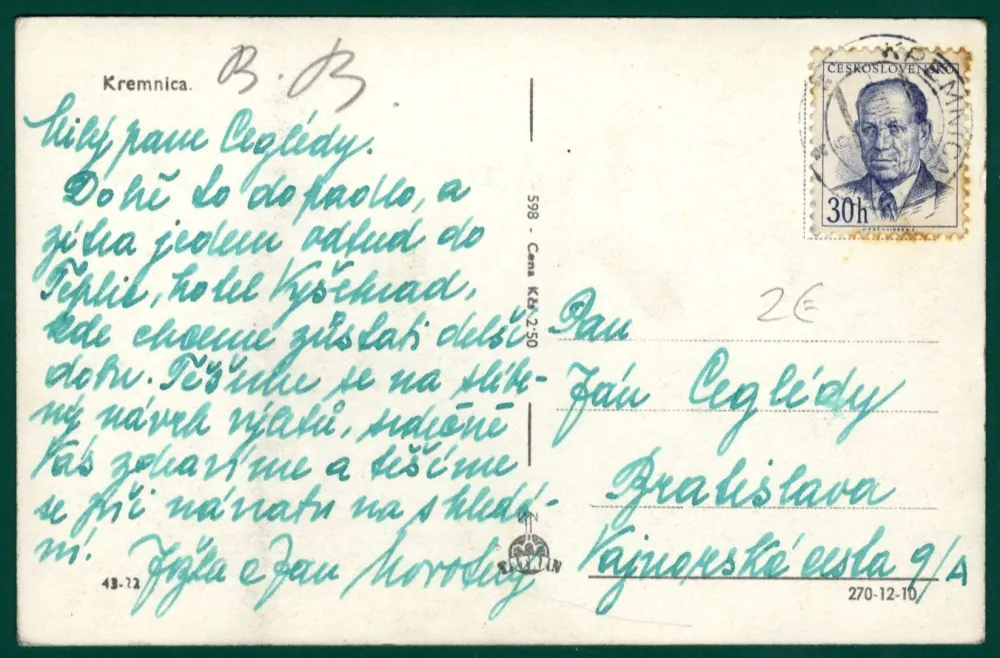 Kremnica.
B. B.
Milý pane Ceglédy.
Dobře to dopadlo, a
zítra jedem odtud do
Teplic, hotel Vyšehrad,
kde chceme zůstati delší
dobu. Těšíme se na slíbe-
ný návrh výletů, srdečně
Vás zdravíme a těšíme
se při návratu na shledá-
ní.
Jožka a Jan Novotný
43-22
598 - Cena Kčs 2·50
ČESKOSLOVENSKO
30h
KREMNICA
2€
Pan
Ján Ceglédy
Bratislava
Vajnorská cesta 9/A
270-12-10